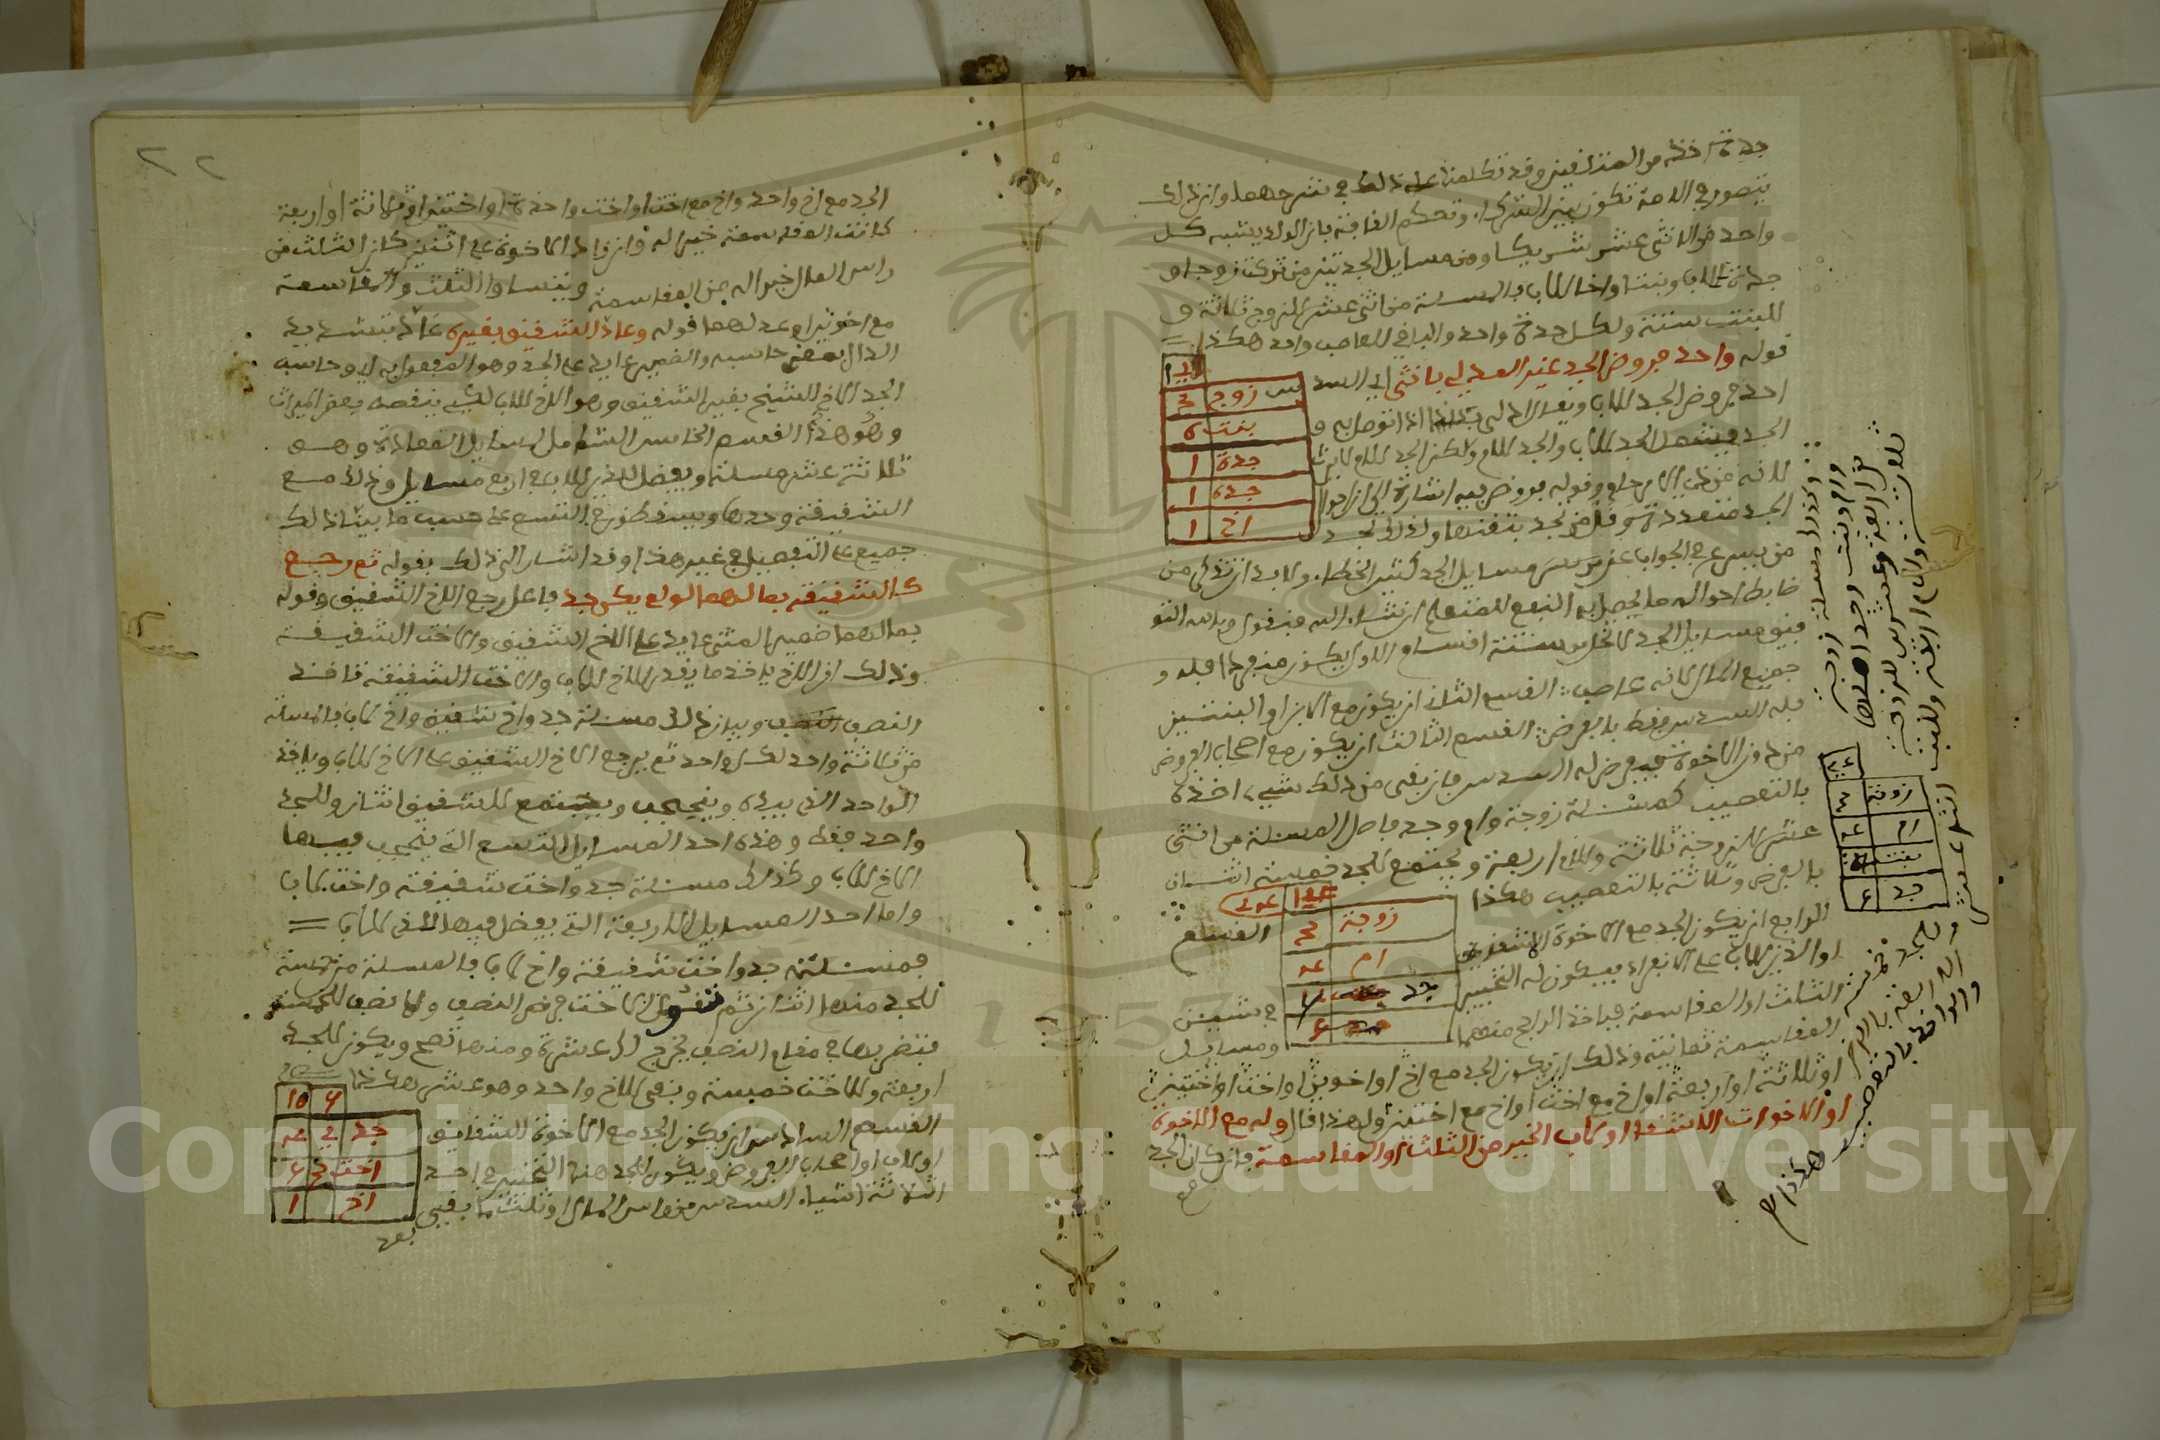 جدة اخذه من المتدافين وقد تكلمنا على ذلك في شرحها وان ذلك
يتصور في الامة تكون بين الشركاء وتحكم القافة بان الولد يشبه كل
واحد من الاثنى عشر شريكا ومن مسايل الجدتين من تركت زوجا و
جدة للاب وبنتا واخا للاب بالمسئلة من اثنى عشر للزوج ثلاثة و
للبنت ستة ولكل جدة واحد والباقي للعاصب واحد هكذا
قوله واحد فروض الجد غير المدلي بانثى اي السدس
احد فروض الجد للاب ويقال ادلى بكذا اذا توصل به و
الجد يشمل الجد للاب والجد للام ولكن الجد للام لا يرث
لانه من ذوي الارحام وقوله فروض فيه اشارة الى ان احوال
الجد متعددة وقل من تجد يتقنها ولذلك تجد
من يسرع في الجواب عن مسايل الجد كثير الخطا ولا بد ان نذكر من
ضابط احواله ما يحصل به النفع للمتعلم ان شاء الله فنقول وبالله التو
فيق مسايل الجد لا تخلو من ستة اقسام الاول يكون منفردا فله
جميع المال لانه عاصب القسم الثاني ان يكون مع الابن او البنين
فله السدس فقط بالفرض القسم الثالث ان يكون مع اصحاب الفروض
من دون الاخوة فيفرض له السدس فان بقي من ذلك شيء اخذه
بالتعصيب كمسئلة زوجة وام وجد فاصل المسئلة من اثنى
عشر للزوجة ثلاثة وللام اربعة ويجتمع للجد خمسة اثنان
بالفرض وثلاثة بالتعصيب هكذا
القسم
الرابع ان يكون الجد مع الاخوة الاشقا
او الذين للاب على الانفراد فيكون له التخيير في شيئين
الثلث او المقاسمة فياخذ الارجح منهما ومسايل
المقاسمة ثمانية وذلك ان يكون الجد مع اخ او اخوين او اخت او اختين
او ثلاثة او اربعة او اخ مع اخت او اخ مع اختين ولهذا قال وله مع الاخوة
او الاخوات الاشقا او لاب الخير من الثلث او المقاسمة فان كان الجد
مع
زوج ٣
بنت ٦
جدة ١
جدة ١
اخ ١
زوجة ٣
ام ٤
جد
وكذلك مسئلة زوجة
وام وبنت وجد اصلها
من اربعة وعشرين للزوجة
ثلاثة وللام اربعة وللبنت اثنى عشر
وللجد خمسة
اربعة بالفرض
والواحد بالتعصيب
هكذا
زوجة ٣
ام ٤
بنت
جد
٢٢
الجد مع اخ واحد واخ مع اخت او اخت واحدة او اختين او ثلاثة او اربعة
كانت المقاسمة خيرا له وان زاد الاخوة على اثنين كان الثلث من
راس المال خير اله من المقاسمة ويتساوا الثلث والمقاسمة
مع اخوين او عدلهما قوله وعاد الشقيق بغيره عاد بتشديد
الدال بمعنى حاسب والضمير عايد على الجد وهو المفعول به اي وحاسب
الجد الاخ الشقيق بغير الشقيق وهو الاخ للاب لكي ينقصه بعض الميراث
وهو هذا القسم الخامس الشامل لمسايل المعادة وهي
ثلاثة عشر مسئلة ويفضل للذي للاب في اربع مسايل وذلك مع
الشقيقة وحدها ويسقطون في التسع على حسب ما بينا ذلك
جميع على التفصيل في غير هذا وقد اشار الى ذلك بقوله ثم رجع
كالشقيقة بما لهما لو لم يكن جد فاعل رجع الاخ الشقيق وقوله
بما لهما ضمير المثنى عايد على الاخ الشقيق والاخت الشقيقة
وذلك ان الاخ ياخذ ما بيد الاخ للاب والاخت الشقيقة تاخذ
النصف وبيان ذلك مسئلة جد واخ شقيق واخ لاب فالمسئلة
من ثلاثة واحد لكل واحد ثم يرجع الاخ الشقيق على الاخ للاب وياخذ
الواحد الذي بيده وينحجب ويجتمع للشقيق اثنان وللجد
واحد فقط وهذه احد المسايل التسع التي ينحجب فيها
الاخ للاب وكذلك مسئلة جد واخت شقيقة واخت لاب
واما احد المسايل الاربعة التي يفضل فيها للذي للاب
فمسئلة جد واخت شقيقة واخ لاب فالمسئلة من خمسة
للجد منها اثنان ثم نقول للاخت فرض النصف ولا نصف للخمسة
فتضربها في مقام النصف يخرج لك عشرة ومنها تصح ويكون للجد
اربعة وللاخت خمسة وبقي للاخ واحد وهو عشر هكذا
القسم السادس ان يكون الجد مع الاخوة الشقايق
او للاب او اصحاب الفروض ويكون للجد هنا التخيير في احد
الثلاثة اشياء السدس من راس المال او ثلث ما بقي
بعد
جد ٢ ٤
اخت
اخ ١
Copyright © King Saud University
1957